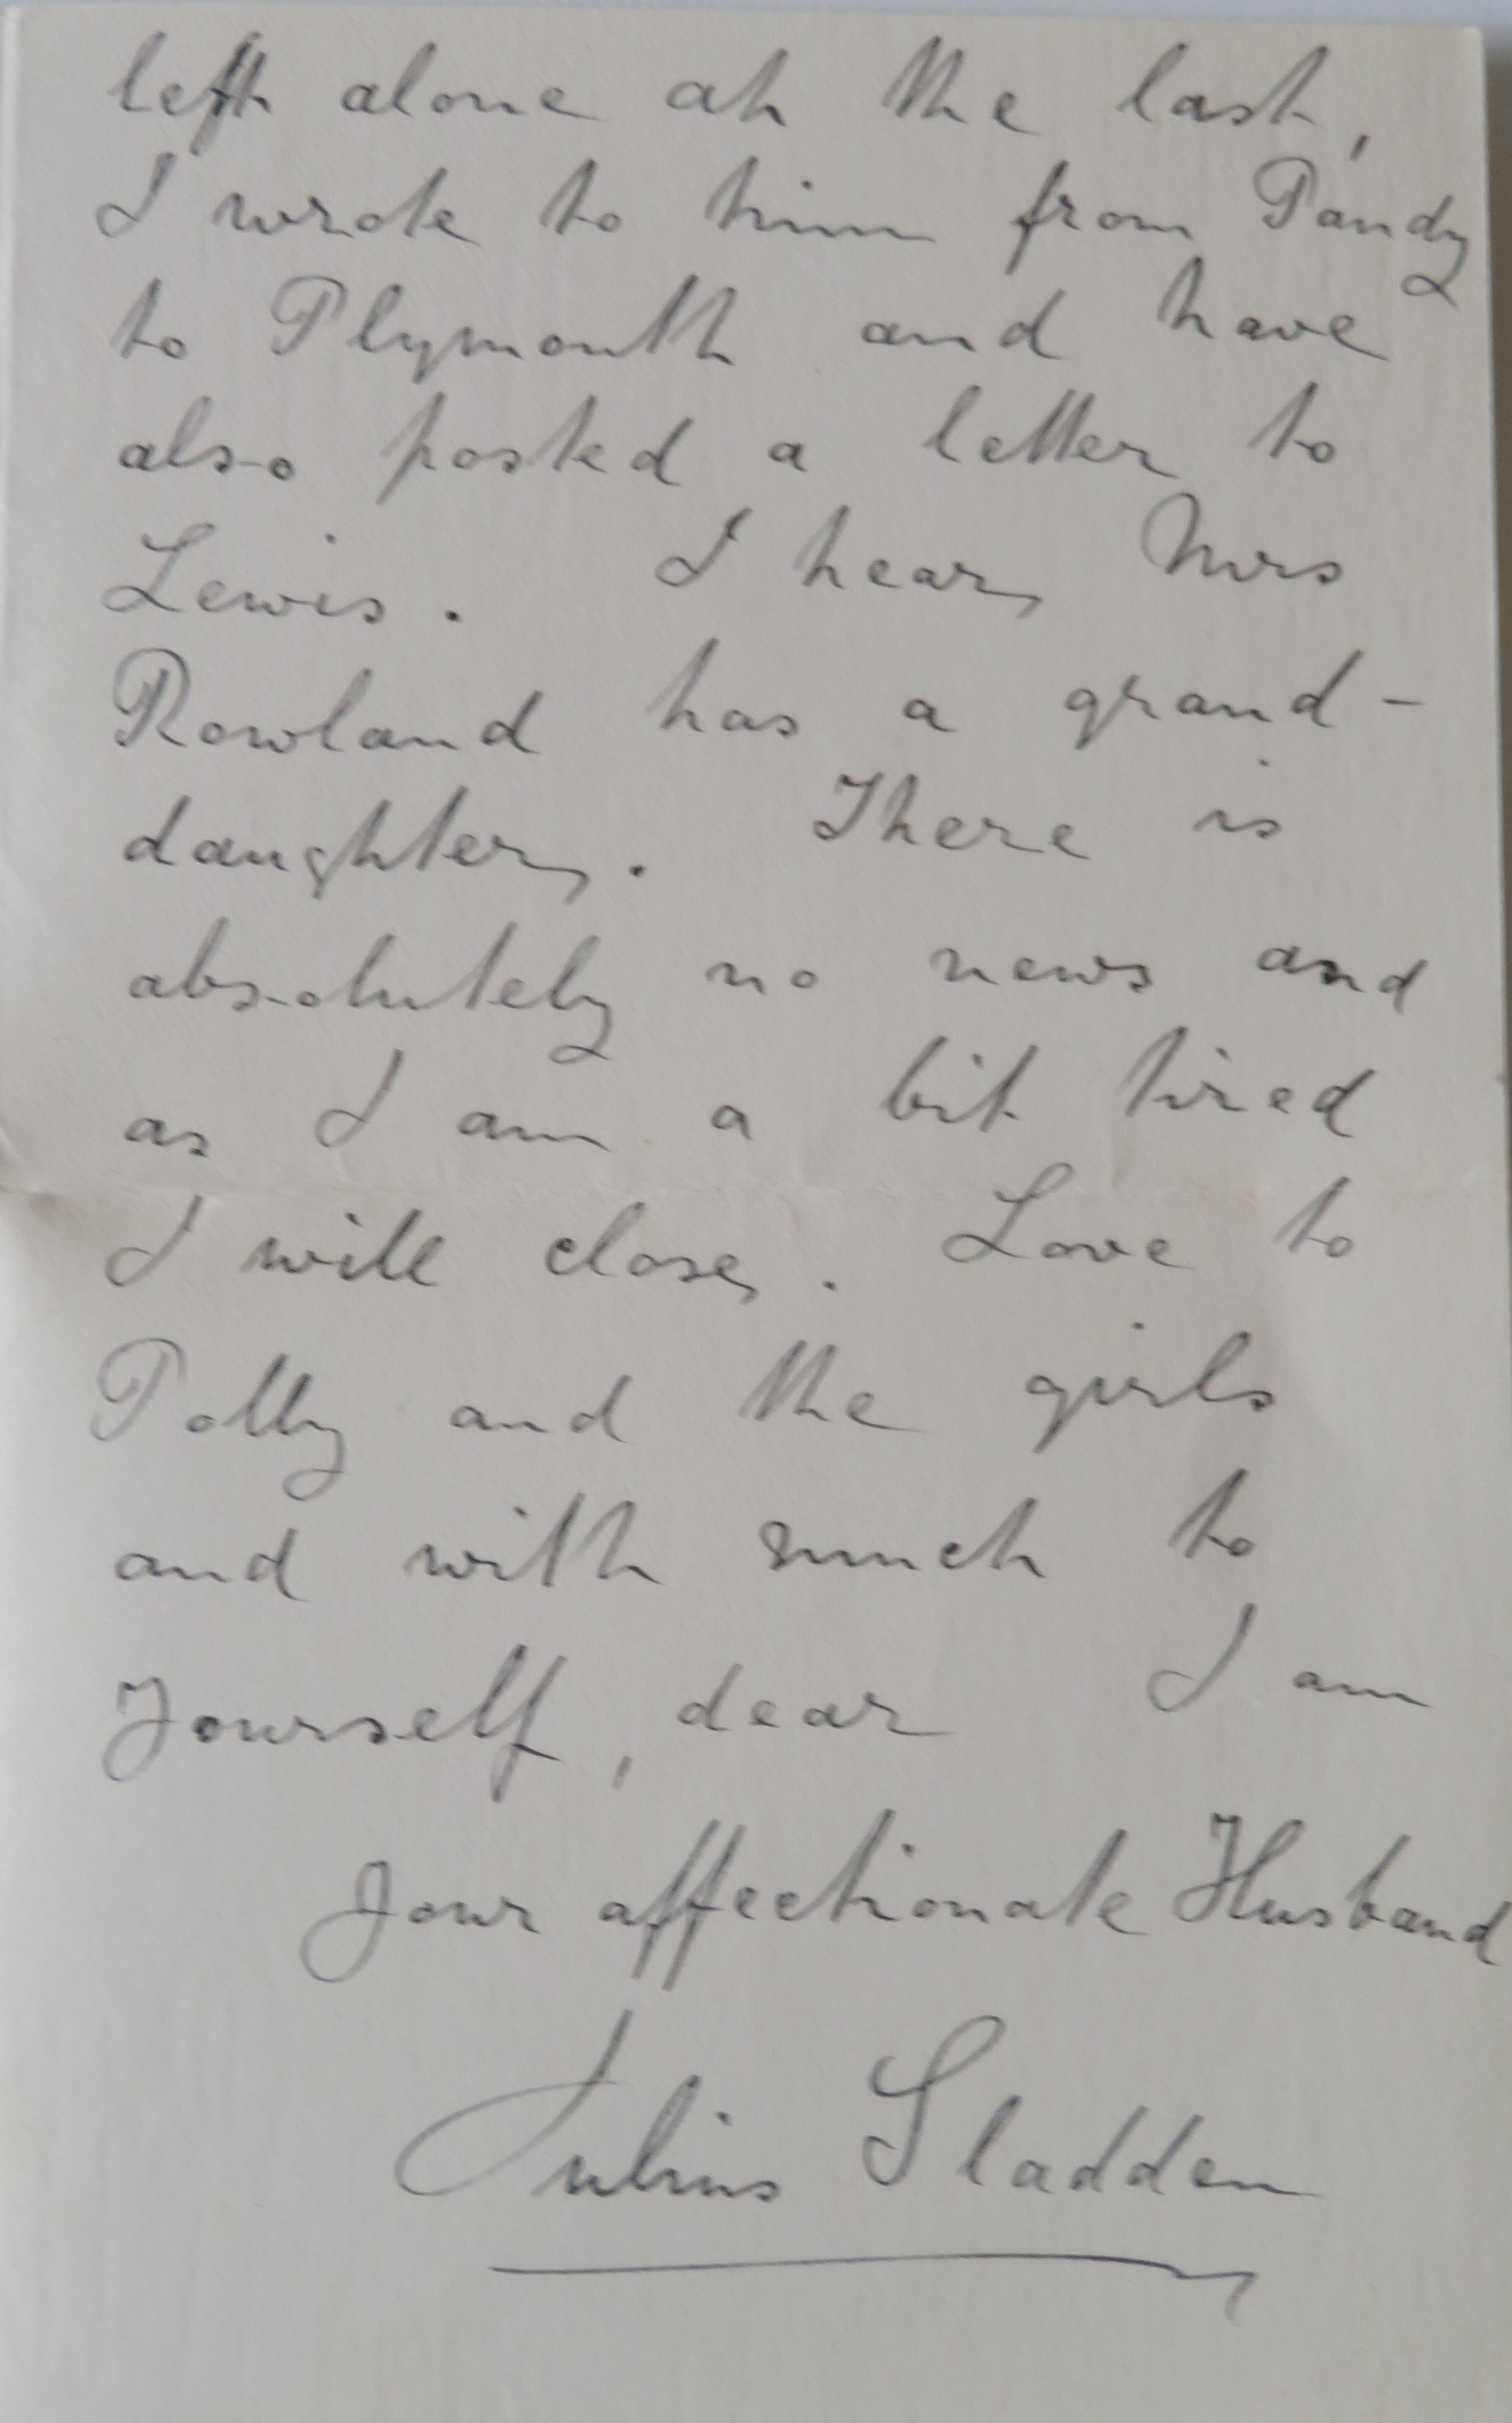 left alone at the last,
I wrote to him from Pandy
to Plymouth and have
also posted a letter to
Lewis. I hear Mrs
Rowland has a grand-
daughter. There is
absolutely no news and
as I am a bit tired
I will close. Love to
Polly and the girls
and with much to
Yourself, dear I am
Your affectionate Husband
Julius Sladden